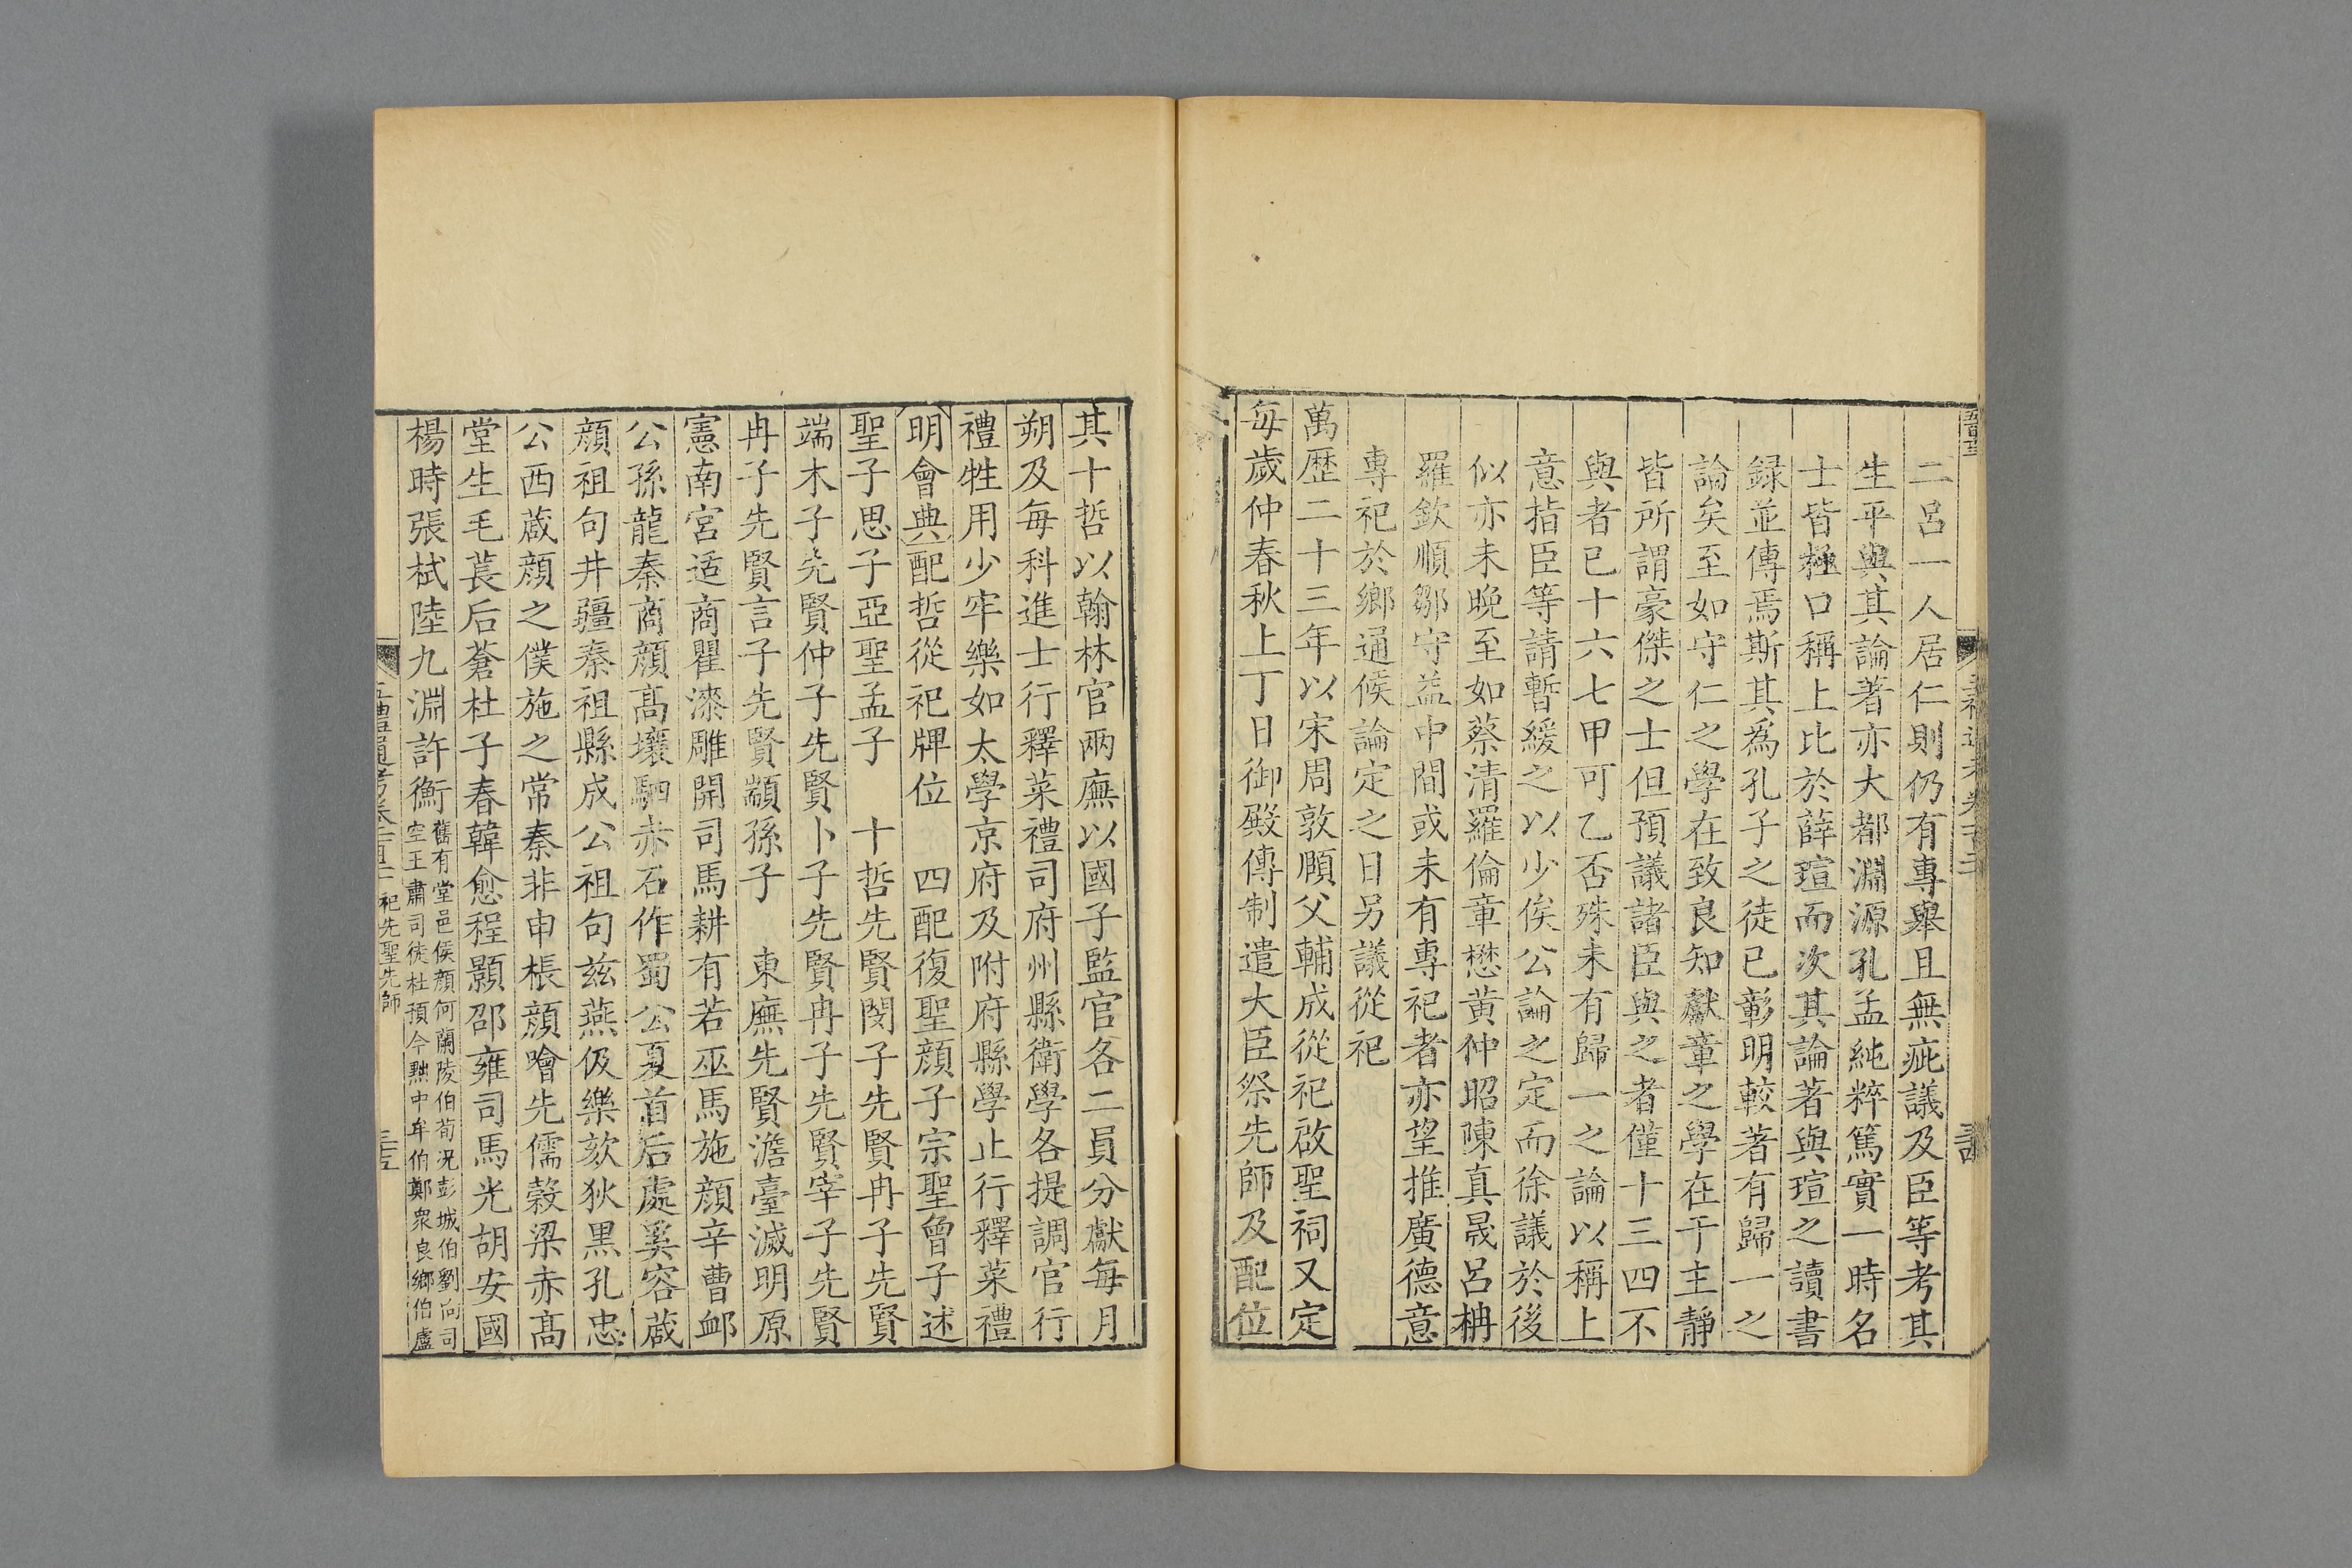 二呂一人居仁則仍有專舉且無疵議及臣等考其
生平與其論著亦大都淵源孔孟純粹篤實一時名
士皆極口稱上比於薛瑄而次其論著與瑄之讀書
録並傳焉斯其爲孔子之徒已彰明較著有歸一之
論矣至如守仁之學在致良知獻章之學在于主靜
皆所謂豪傑之士但預議諸臣與之者僅十三四不
與者已十六七甲可乙否殊未有歸一之論以稱上
意指臣等請暫緩之以少俟公論之定而徐議於後
似亦未晚至如蔡清羅倫章懋黃仲昭陳真晟呂柟
羅欽順鄒守益中間或未有專祀者亦望推廣德意
專祀於鄉通候論定之日另議從祀
萬歷二十三年以宋周敦頤父輔成從祀啟聖祠又定
每歲仲春秋上丁日御殿傳制遣大臣祭先師及配位
其十哲以翰林官兩廡以國子監官各二員分獻每月
朔及每科進士行釋菜禮司府州縣衛學各提調官行
禮牲用少牢樂如太學京府及附府縣學止行釋菜禮
明會典配哲從祀牌位　四配復聖顏子宗聖曾子述
聖子思子亞聖孟子　十哲先賢閔子先賢冉子先賢
端木子先賢仲子先賢卜子先賢冉子先賢宰子先賢
冉子先賢言子先賢顓孫子　東廡先賢澹臺滅明原
憲南宮适商瞿漆雕開司馬耕有若巫馬施顏辛曹卹
公孫龍秦商顏高壤駟赤石作蜀公夏首后處奚容蒧
顏祖句井疆秦祖縣成公祖句茲燕伋樂欬狄黒孔忠
公西蒧顏之僕施之常秦非申棖顏噲先儒穀梁赤高
堂生毛萇后蒼杜子春韓愈程顥邵雍司馬光胡安國
楊時張栻陸九淵許衡舊有堂邑侯顏何蘭陵伯荀況彭城伯劉向司
空王肅司徒杜預今黜中牟伯鄭衆良鄉伯盧
五禮通考卷一百二十　祀先聖先師　三五